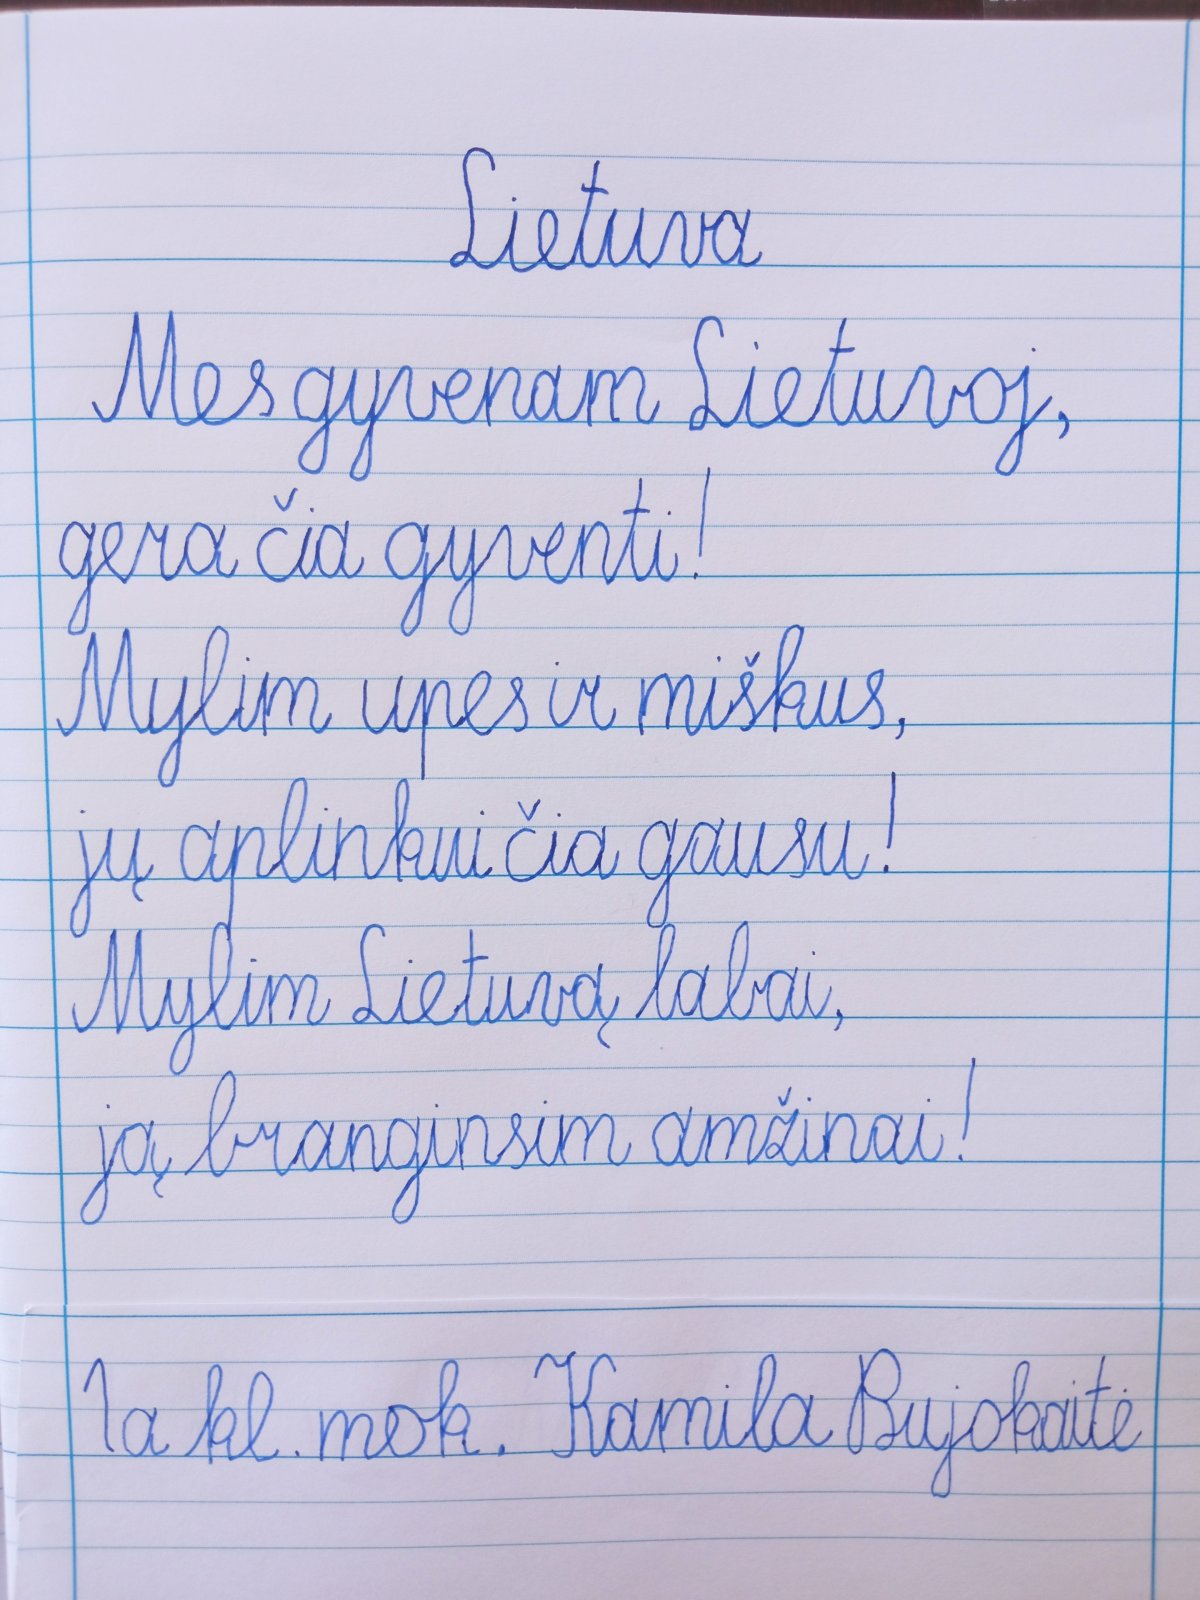 Lietuva
Mes gyvenam Lietuvoj,
gera čia gyventi!
Mylim upes ir miškus,
jų aplinkui čia gausu!
Mylim Lietuvą labai,
ją branginsim amžinai!
1a kl. mok. Kamila Bujokaitė